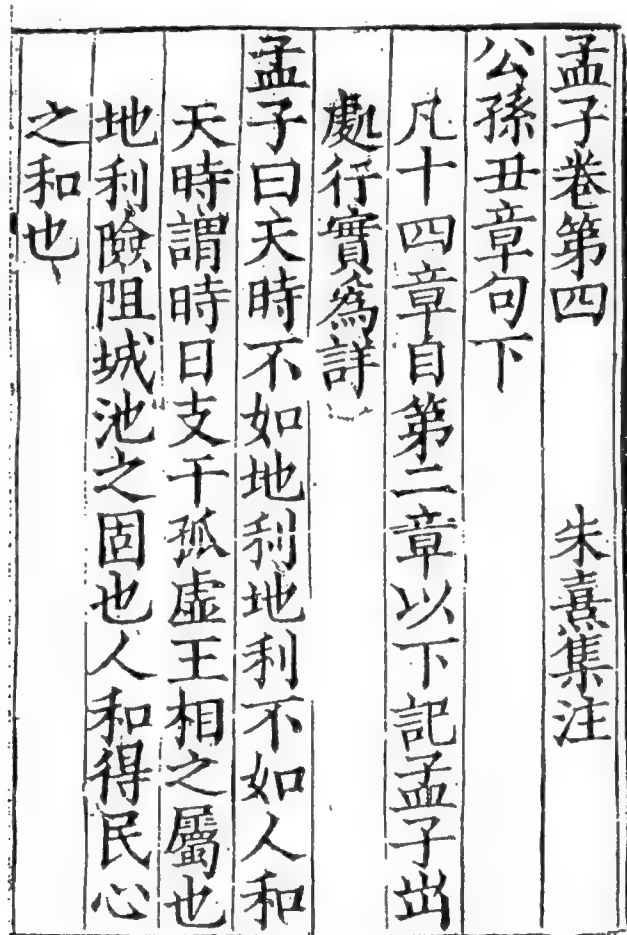 孟子卷第四 朱熹集注
公孫丑章句下
凡十四章自第二章以下記孟子出
處行實爲詳
孟子曰天時不如地利地利不如人和
天時謂時日支干孤虛王相之屬也
地利險阻城池之固也人和得民心
之和也